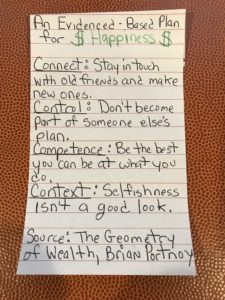 An Evidenced-Based Plan
for $ Happiness $
Connect: Stay in touch
with old friends and make
new ones.
Control: Don't become
part of someone else's
plan.
Competence: Be the best
you can be at what you
do.
Context: Selfishness
isn't a good look.
Source: The Geometry
of Wealth, Brian Portnoy